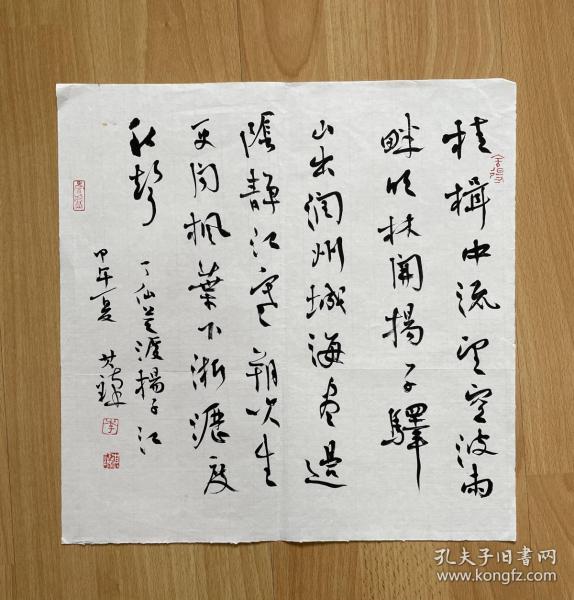 桂楫中流望空波两
畔明林開揚子驛
山出润州城海盡邊
陰静江寒朔吹生
更闻枫葉下淅瀝度
秋聲
丁仙芝渡揚子江
甲午夏
孔夫子旧书网
www.kongfz.com